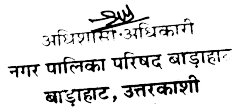 अधिशासी अधिकारी
नगर पालिका परिषद बाड़ाहाट
बाड़ाहाट, उत्तरकाशी